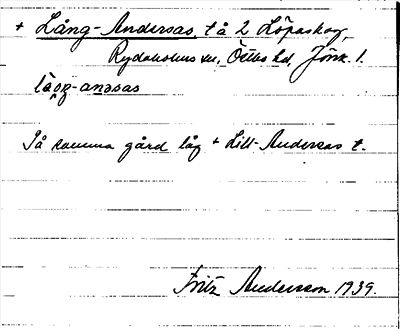 + Lång-Andersas, t å 2 Löpaskog,
Rydaholms sn, Östbo hd, Jönk. l.
låŋ-anəsas
På samma gård låg + Lill-Anderas t.
Fritz Andersson 1939.